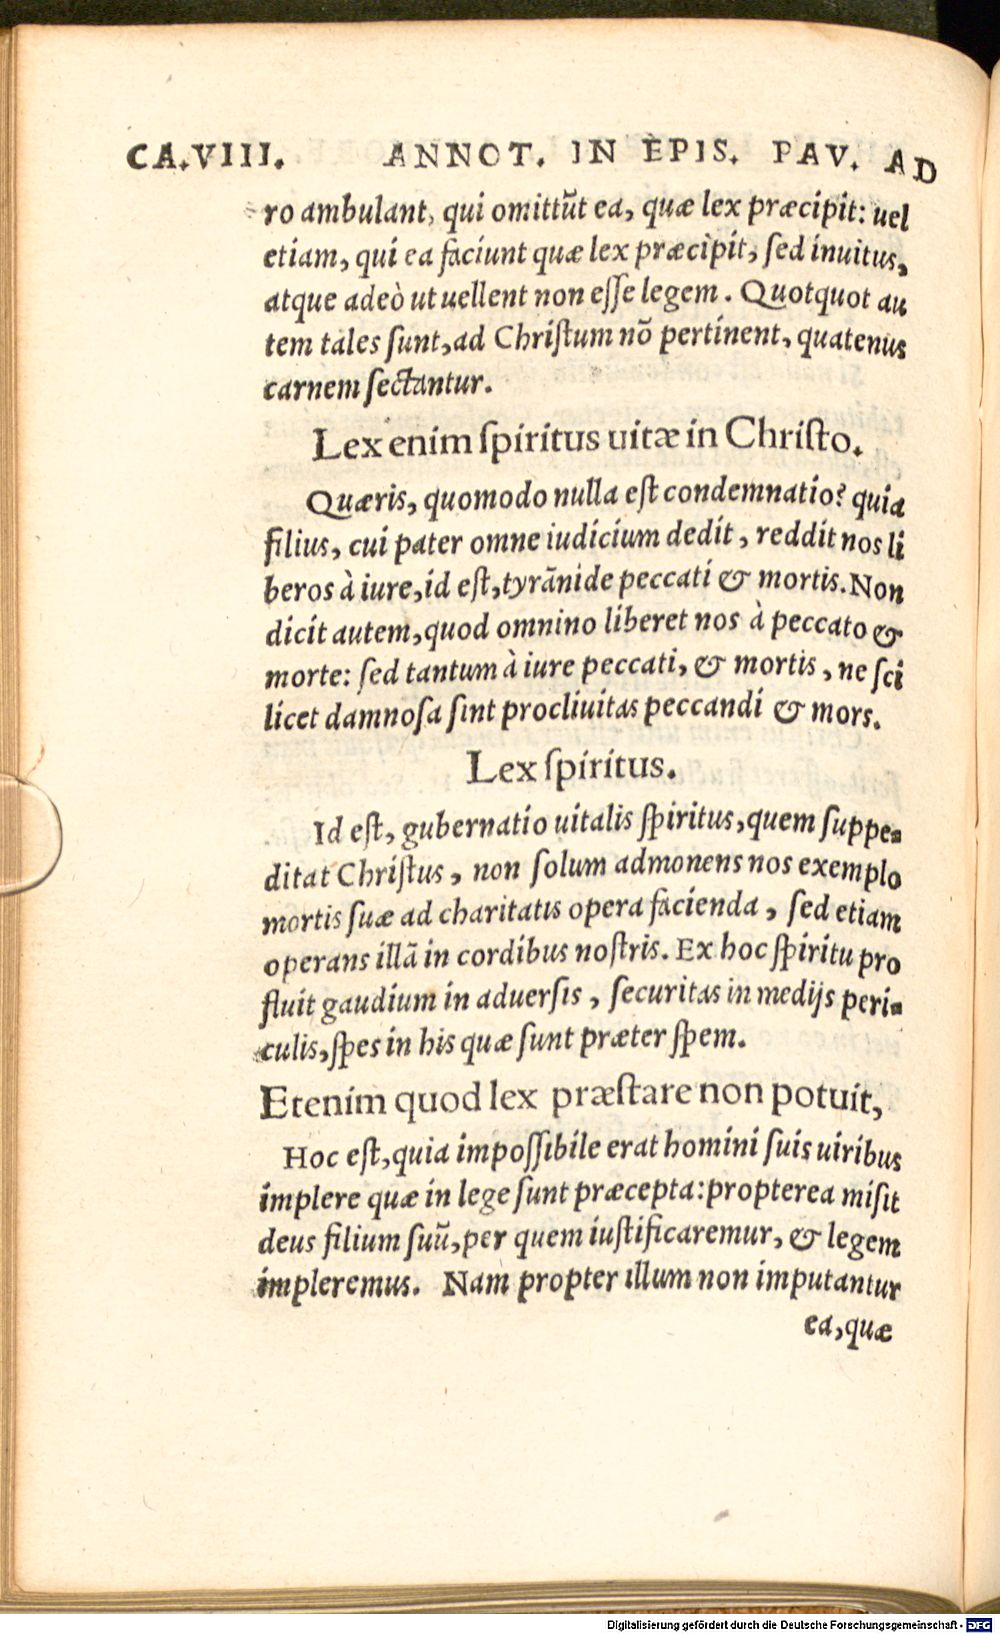 CA.VIII. ANNOT. IN EPIS. PAV. AD
ro ambulant, qui omittũt ea, quæ lex præcipit: uel
etiam, qui ea faciunt quæ lex præcipit, sed inuitus,
atque adeò ut uellent non esse legem. Quotquot au
tem tales sunt, ad Christum nõ pertinent, quatenus
carnem sectantur.
Lex enim spiritus uitæ in Christo.
Quæris, quomodo nulla est condemnatio? quia
filius, cui pater omne iudicium dedit, reddit nos li
beros à iure, id est, tyrãnide peccati & mortis. Non
dicit autem, quod omnino liberet nos à peccato &
morte: sed tantum à iure peccati, & mortis, ne sci
licet damnosa sint procliuitas peccandi & mors.
Lex spiritus.
Id est, gubernatio uitalis spiritus, quem suppe-
ditat Christus, non solum admonens nos exemplo
mortis suæ ad charitatis opera facienda, sed etiam
operans illã in cordibus nostris. Ex hoc spiritu pro
fluit gaudium in aduersis, securitas in medijs peri-
culis, spes in his quæ sunt præter spem.
Etenim quod lex præstare non potuit,
Hoc est, quia impossibile erat homini suis uiribus
implere quæ in lege sunt præcepta: propterea misit
deus filium suũ, per quem iustificaremur, & legem
impleremus. Nam propter illum non imputantur
ea, quæ
Digitalisierung gefördert durch die Deutsche Forschungsgemeinschaft - DFG